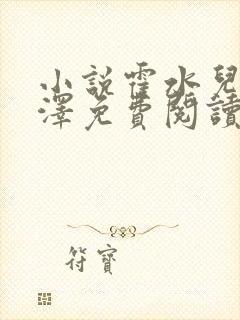 小說霍水兒
澤免費閱讀
符寶